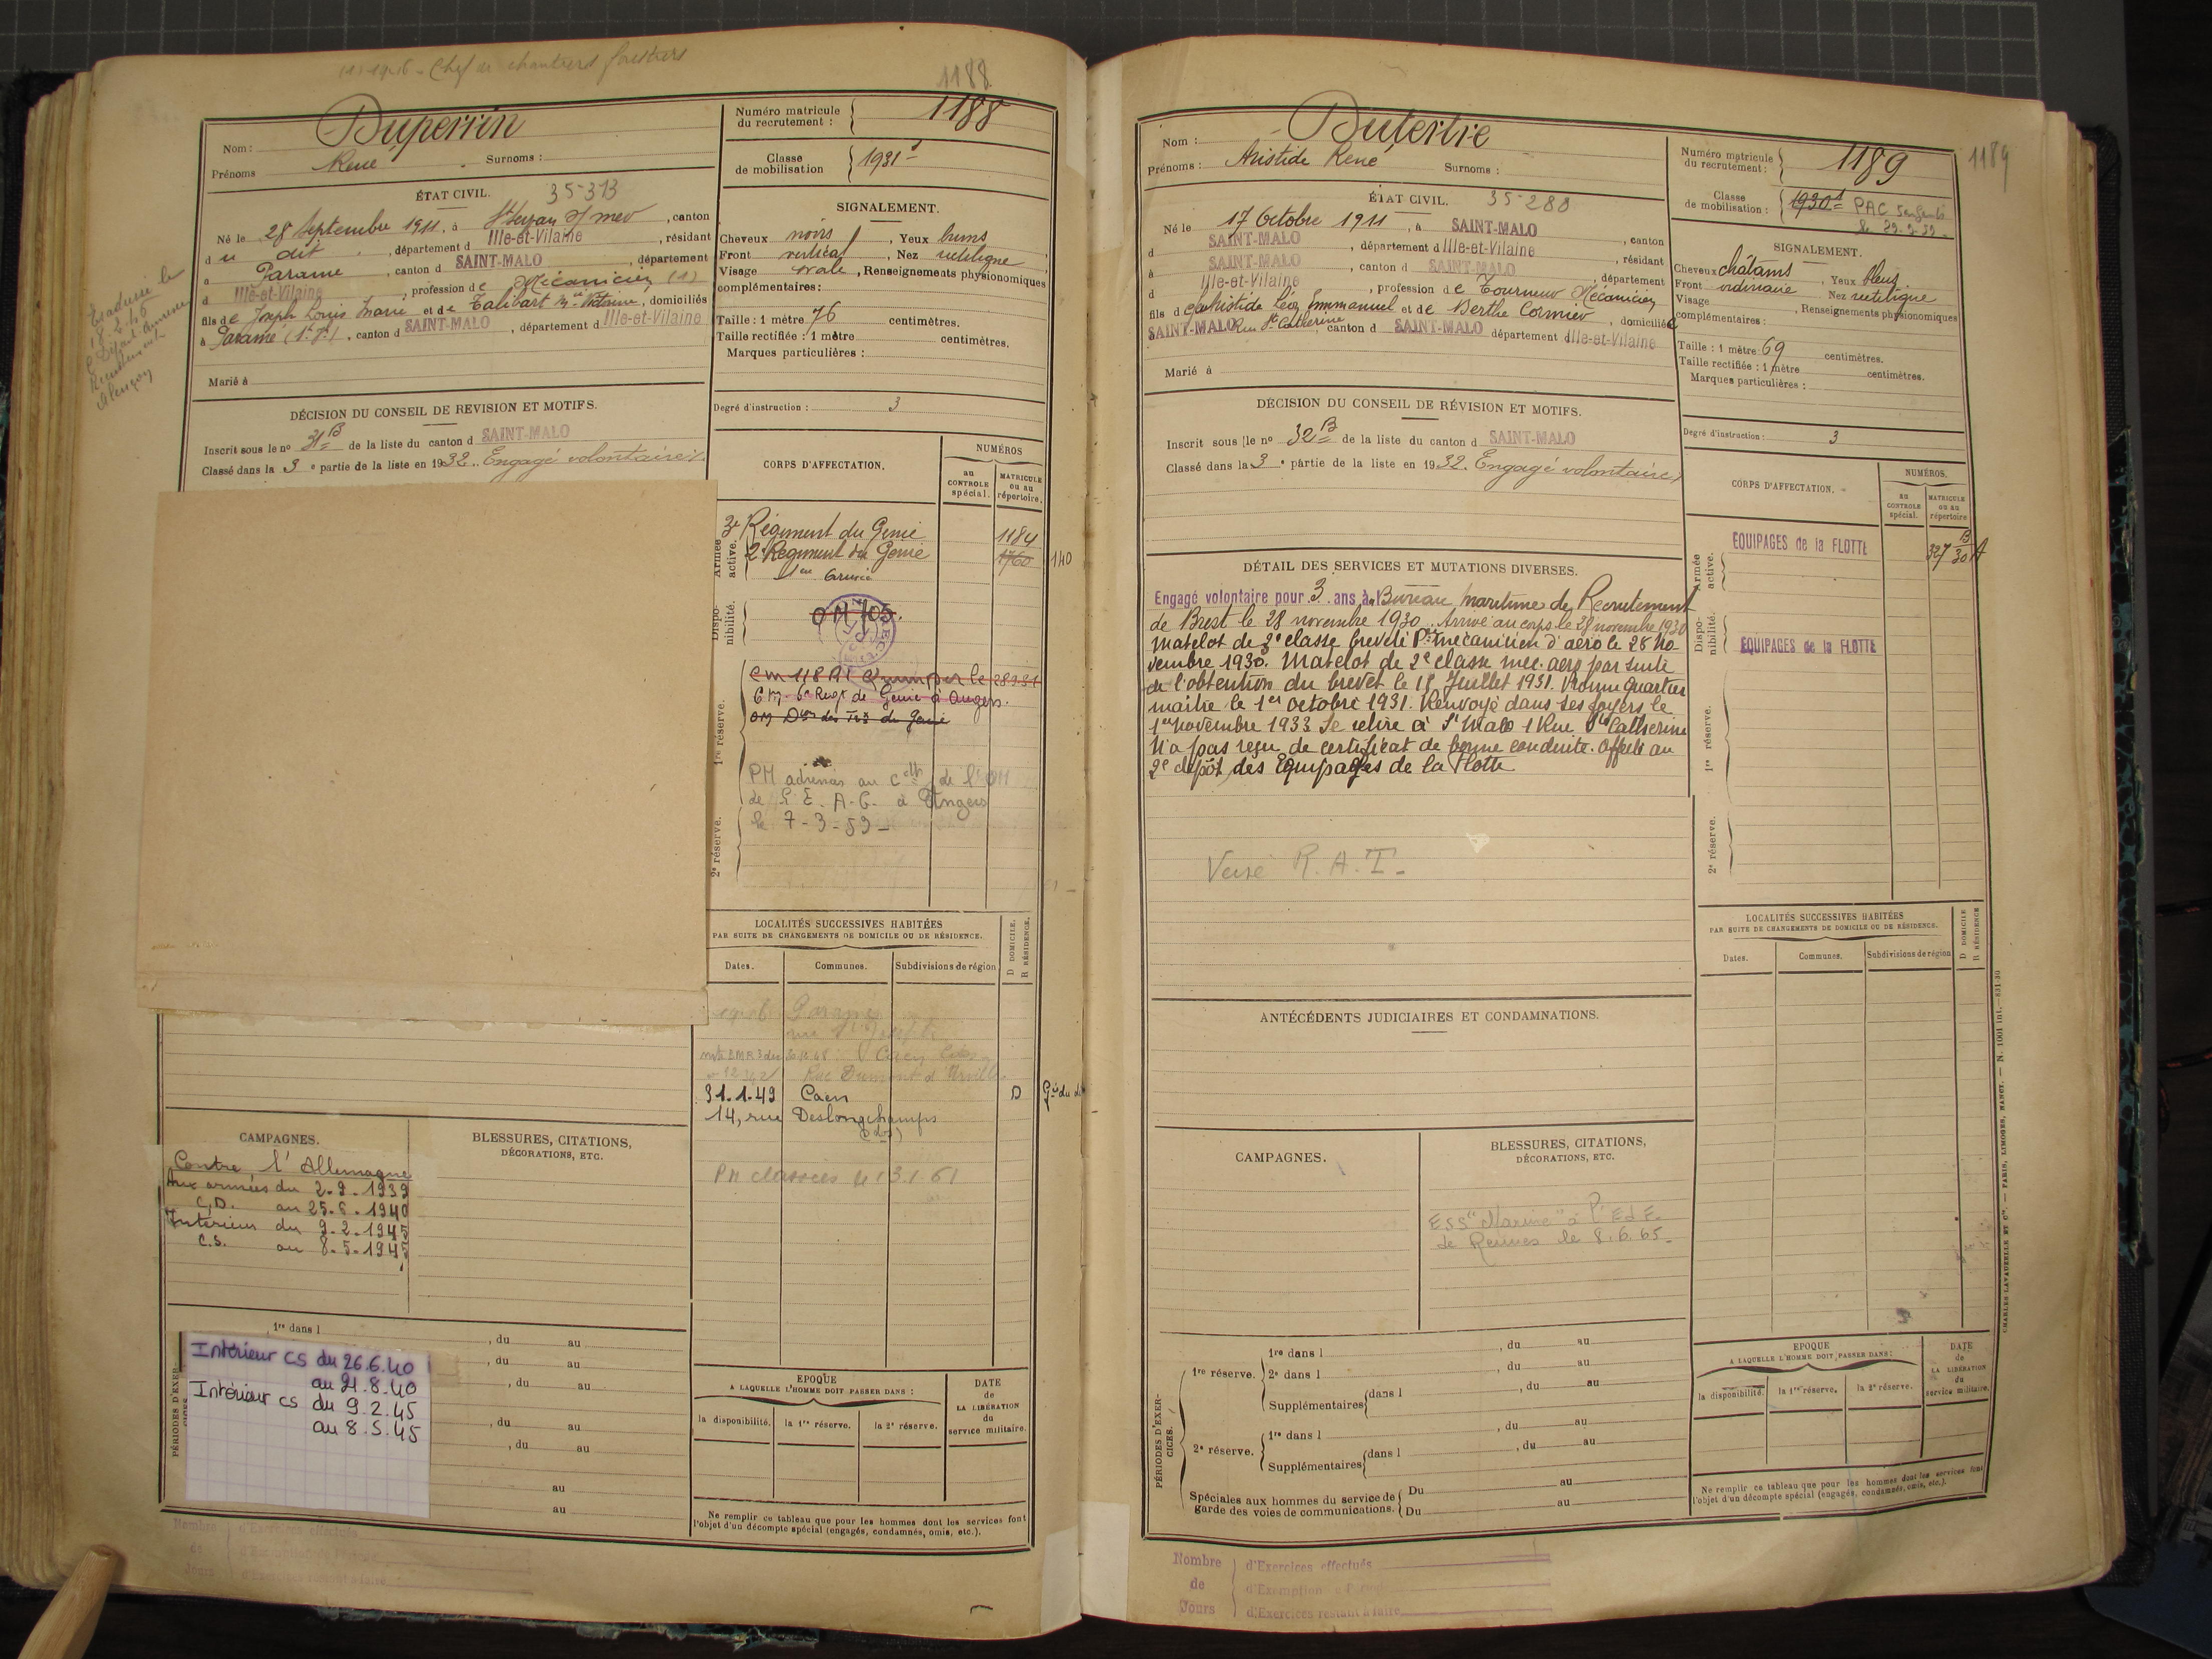 Chef de chantiers forestiers
1188
Nom : Duperrin
Prénoms René Surnoms :
Numéro matricule du recrutement : 1188
Classe de mobilisation 1931
ÉTAT CIVIL. 35-313
Né le 28 Septembre 1911, à St Servan s/ mer, canton
d u dit, département d Ille-et-Vilaine, résidant
à Paramé, canton d SAINT-MALO, département
d Ille-et-Vilaine, profession de Mécanicien (1)
fils de Joseph Louis Marie et de Talibart, domiciliés
à Paramé, canton d SAINT-MALO, département d Ille-et-Vilaine
Marié à
SIGNALEMENT.
Cheveux noirs, Yeux bruns
Front vertical, Nez rectiligne
Visage ovale, Renseignements physionomiques
complémentaires :
Taille : 1 mètre 76 centimètres.
Taille rectifiée : 1 mètre centimètres.
Marques particulières :
Degré d'instruction : 3
DÉCISION DU CONSEIL DE REVISION ET MOTIFS.
Inscrit sous le no 31 B de la liste du canton d SAINT-MALO
Classé dans la 3e partie de la liste en 1932. Engagé volontaire
CORPS D'AFFECTATION.
NUMÉROS
au CONTROLE spécial.
MATRICULE ou au répertoire.
Armée active.
3e Régiment du Génie 1184
2e Régiment du Génie 1760 140
Disponibilité.
OM 705.
1re réserve.
6e Regt de Génie à Angers.
PM adressés au de l'OM
de l'E. A-C. à Angers
le 7-3-53-
2e réserve.
LOCALITÉS SUCCESSIVES HABITÉES
PAR SUITE DE CHANGEMENTS DE DOMICILE OU DE RÉSIDENCE.
D DOMICILE.
R RÉSIDENCE.
Dates. Communes. Subdivisions de région
Paramé
Caen
Rue Dumont d'Urville
31.1.49 Caen D
14, rue Deslongchamps
PM classées le 13.1.61
CAMPAGNES.
Contre l'Allemagne
Aux armées du 2.9.1939
C.D. au 25.6.1940
Intérieur du 9.2.1945
C.S. au 8.5.1945
BLESSURES, CITATIONS, DÉCORATIONS, ETC.
1re dans l , du au
Intérieur CS du 26.6.40
au 21.8.40
Intérieur CS du 9.2.45
au 8.5.45
EPOQUE
A LAQUELLE L'HOMME DOIT PASSER DANS :
la disponibilité. la 1re réserve. la 2e réserve.
DATE de LA LIBÉRATION du service militaire.
Ne remplir ce tableau que pour les hommes dont les services font
l'objet d'un décompte spécial (engagés, condamnés, omis, etc.).
Nombre de Jours
d'Exercices effectués
d'Exercices restant à faire
Nom : Dutertre
Prénoms : Aristide René Surnoms :
Numéro matricule du recrutement : 1189
1189
Classe de mobilisation : 1930 PAC 5 enfants
ÉTAT CIVIL. 35-288
Né le 17 Octobre 1911, à SAINT-MALO, canton
d SAINT-MALO, département d Ille-et-Vilaine, résidant
à SAINT-MALO, canton d SAINT-MALO, département
d Ille-et-Vilaine, profession de Tourneur Mécanicien
fils de Aristide Léon Emmanuel et de Berthe Cormier, domiciliés
SAINT-MALO Rue Ste Catherine, canton d SAINT-MALO département d Ille-et-Vilaine
Marié à
SIGNALEMENT.
Cheveux châtains, Yeux bleus
Front ordinaire Nez rectiligne
Visage, Renseignements physionomiques
complémentaires :
Taille : 1 mètre 69 centimètres.
Taille rectifiée : 1 mètre centimètres.
Marques particulières :
Degré d'instruction : 3
DÉCISION DU CONSEIL DE RÉVISION ET MOTIFS.
Inscrit sous le no 32 B de la liste du canton d SAINT-MALO
Classé dans la 3e partie de la liste en 1932. Engagé volontaire
CORPS D'AFFECTATION.
NUMÉROS.
au CONTROLE spécial.
MATRICULE ou au répertoire
Armée active.
EQUIPAGES de la FLOTTE 327 B 30
Disponibilité.
EQUIPAGES de la FLOTTE
1re réserve.
2e réserve.
DÉTAIL DES SERVICES ET MUTATIONS DIVERSES.
Engagé volontaire pour 3 ans au Bureau maritime de Recrutement
de Brest le 28 novembre 1930. Arrivé au corps le 28 novembre 1930
Matelot de 3e classe breveté Pre mécanicien d'aéro le 28 No-
vembre 1930. Matelot de 2e classe mec. aero par suite
de l'obtention du brevet le 15 Juillet 1931. Promu Quartier
maître le 1er octobre 1931. Renvoyé dans ses foyers le
1er novembre 1933 Se retire à St Malo 1 Rue Ste Catherine
N'a pas reçu de certificat de bonne conduite. Affecté au
2e dépôt des Equipages de la Flotte
Versé R.A.T.
ANTÉCÉDENTS JUDICIAIRES ET CONDAMNATIONS.
LOCALITÉS SUCCESSIVES HABITÉES
PAR SUITE DE CHANGEMENTS DE DOMICILE OU DE RÉSIDENCE.
D DOMICILE
R RÉSIDENCE
Dates. Communes. Subdivisions de région
CAMPAGNES.
BLESSURES, CITATIONS, DÉCORATIONS, ETC.
ESS "Marine" à l'E d E.
de Rennes le 8.6.65-
PÉRIODES D'EXERCICES.
1re réserve. 1re dans l , du au
2e dans l , du au
Supplémentaires dans l , du au
2e réserve. 1re dans l , du au
Supplémentaires dans l , du au
Spéciales aux hommes du service de garde des voies de communications. Du au
Du au
EPOQUE
A LAQUELLE L'HOMME DOIT PASSER DANS :
la disponibilité. la 1re réserve. la 2e réserve.
DATE de LA LIBÉRATION du service militaire.
Ne remplir ce tableau que pour les hommes dont les services font
l'objet d'un décompte spécial (engagés, condamnés, omis, etc.).
Nombre de Jours
d'Exercices effectués
d'Exemption
d'Exercices restant à faire
CHARLES-LAVAUZELLE ET Cie. — PARIS, LIMOGES, NANCY. — N. 1001 int. — 831-30